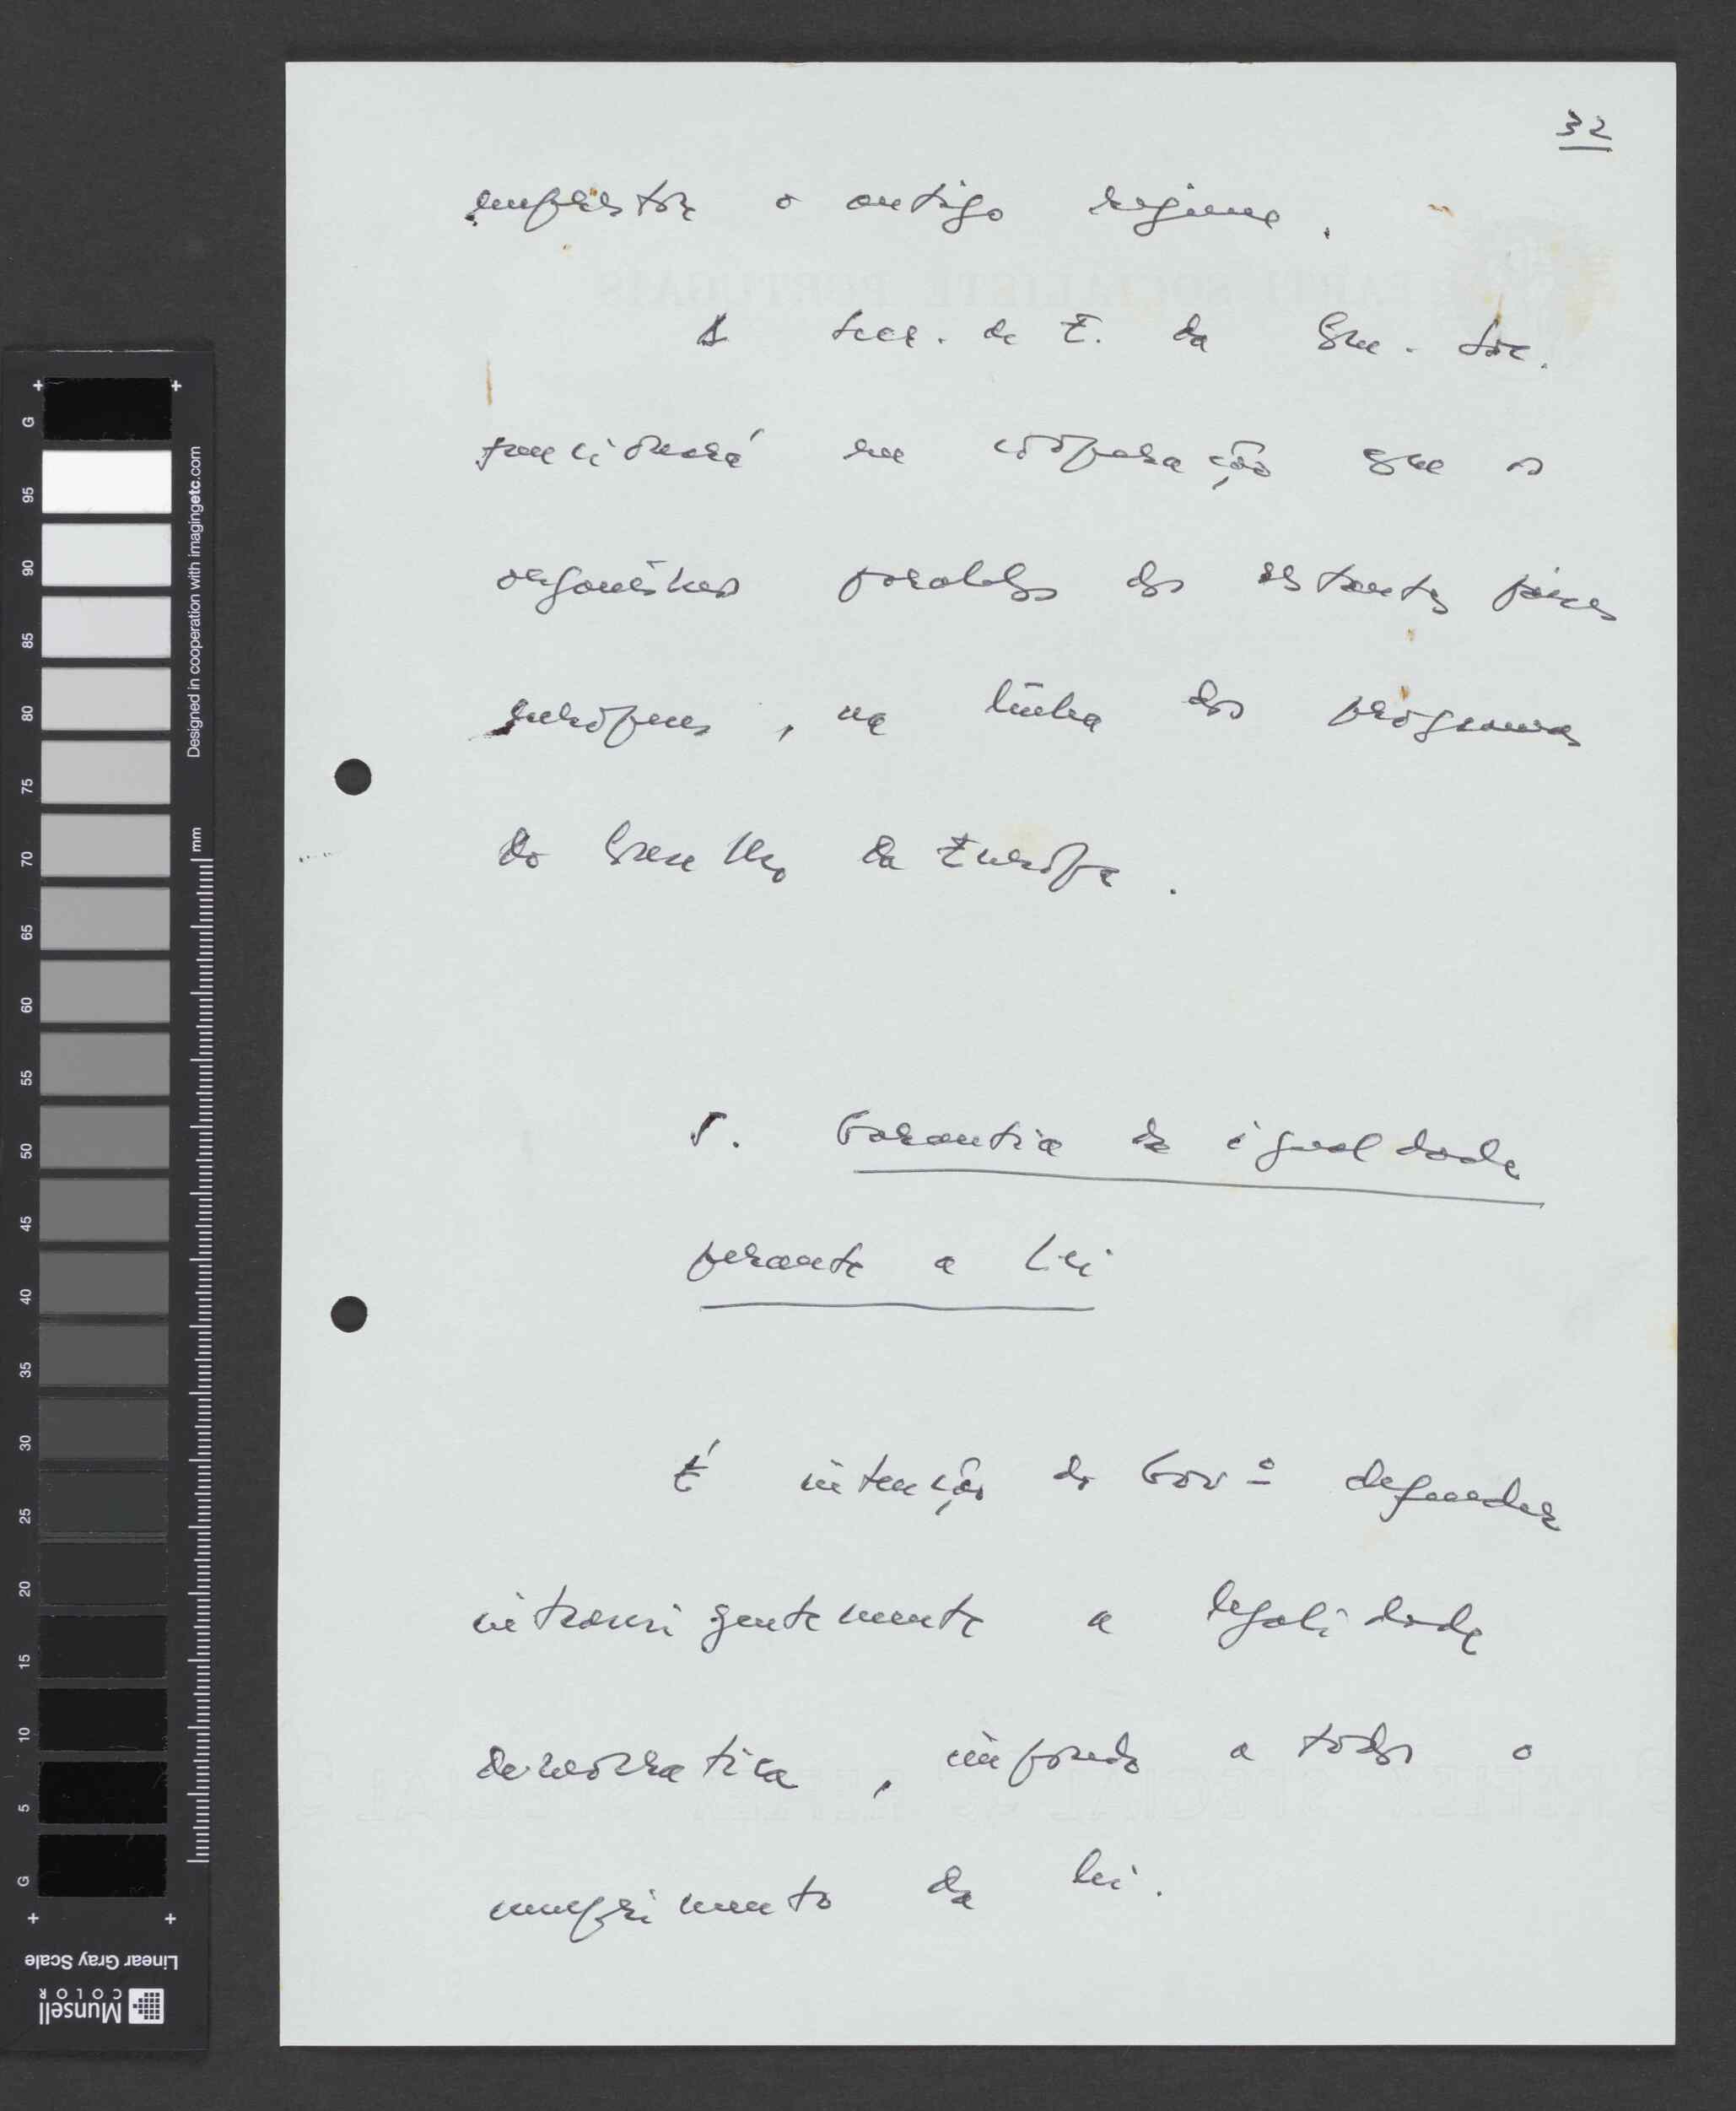 32
o antigo regime.
A Secr. de E. da Com. Soc.
funcionará em cooperação com os
organismos paralelos dos restantes países
europeus, na linha dos programas
do Conselho da Europa.
5. Garantia da igualdade
perante a Lei
É intenção do Govº defender
intransigentemente a legalidade
democratica, impondo a todos o
cumprimento da lei.
PARTI SOCIALISTE PORTUGAIS
G
95
90
85
80
75
70
65
60
55
50
45
40
35
30
25
20
15
10
5
G
Designed in cooperation with imagingetc.com
mm
Linear Gray Scale
Munsell
COLOR